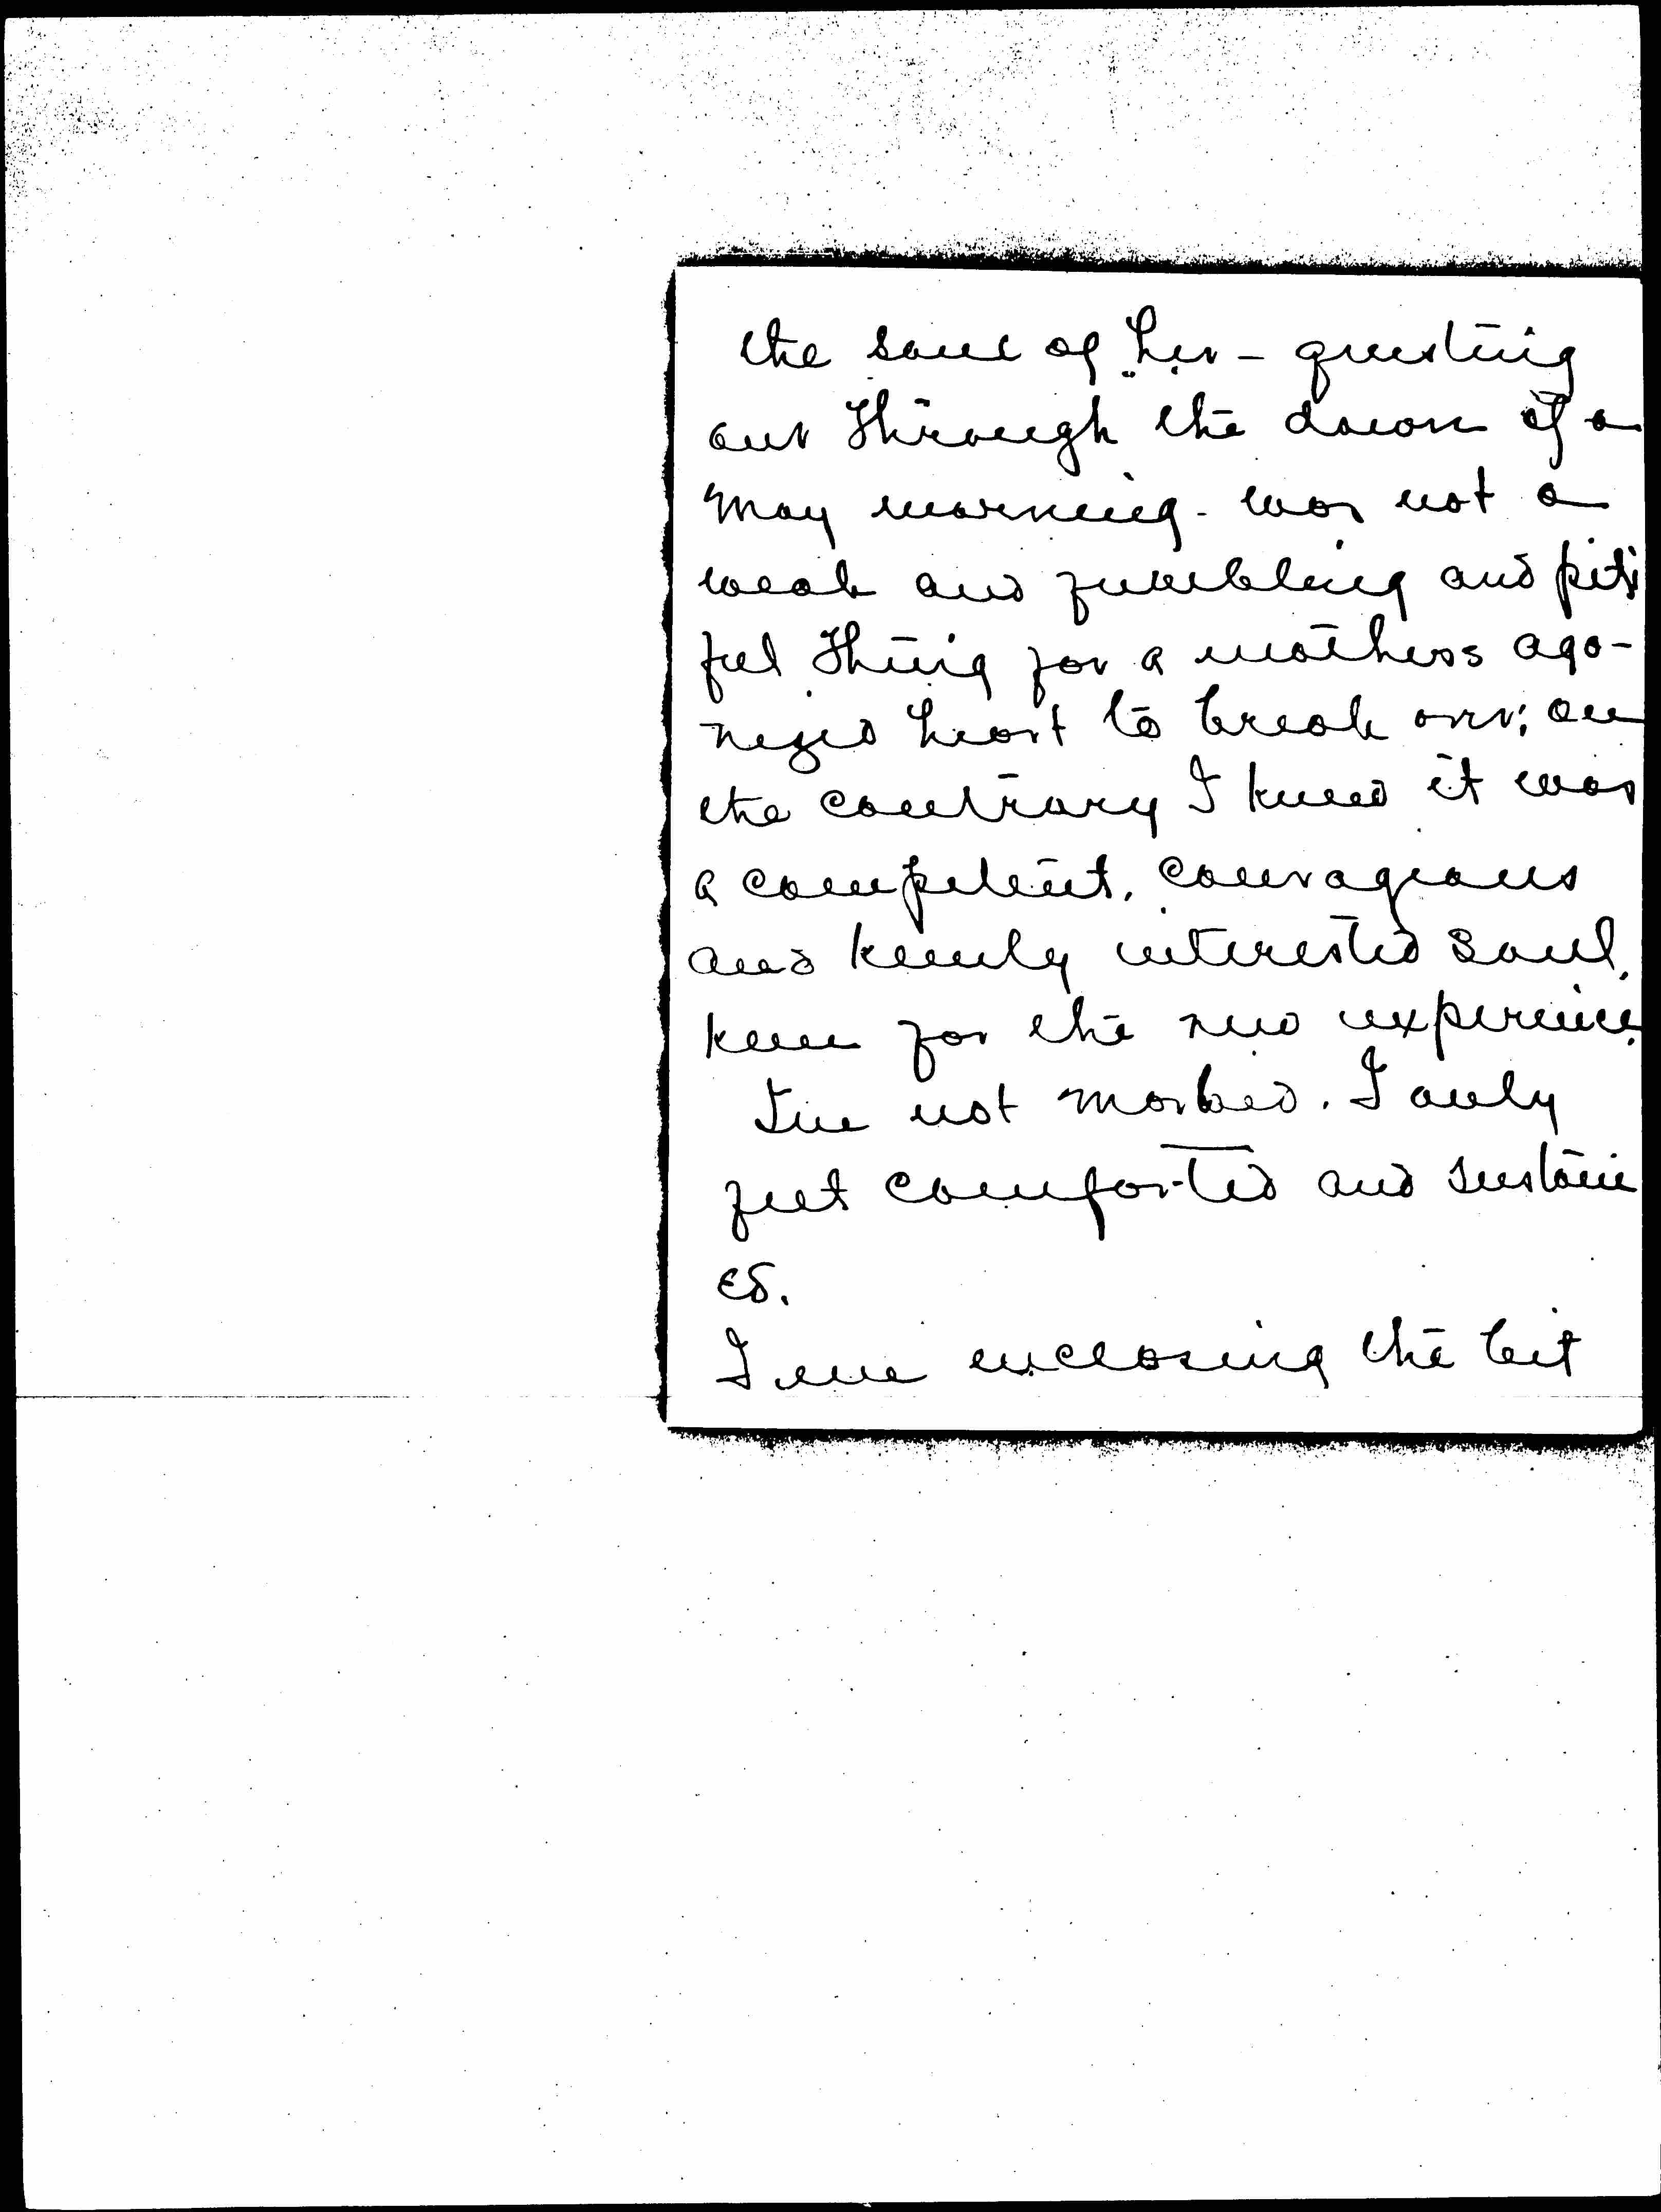 the soul of her - questing
out through the dawn of a
May morning - was not a
weak and fumbling and piti
ful thing for a mothers ago-
nized heart to break over; on
the contrary I knew it was
a competent, courageous
and keenly interested soul,
keen for the new experience.
I'm not morbid. I only
feel comforted and sustain
ed.
I am enclosing the bit